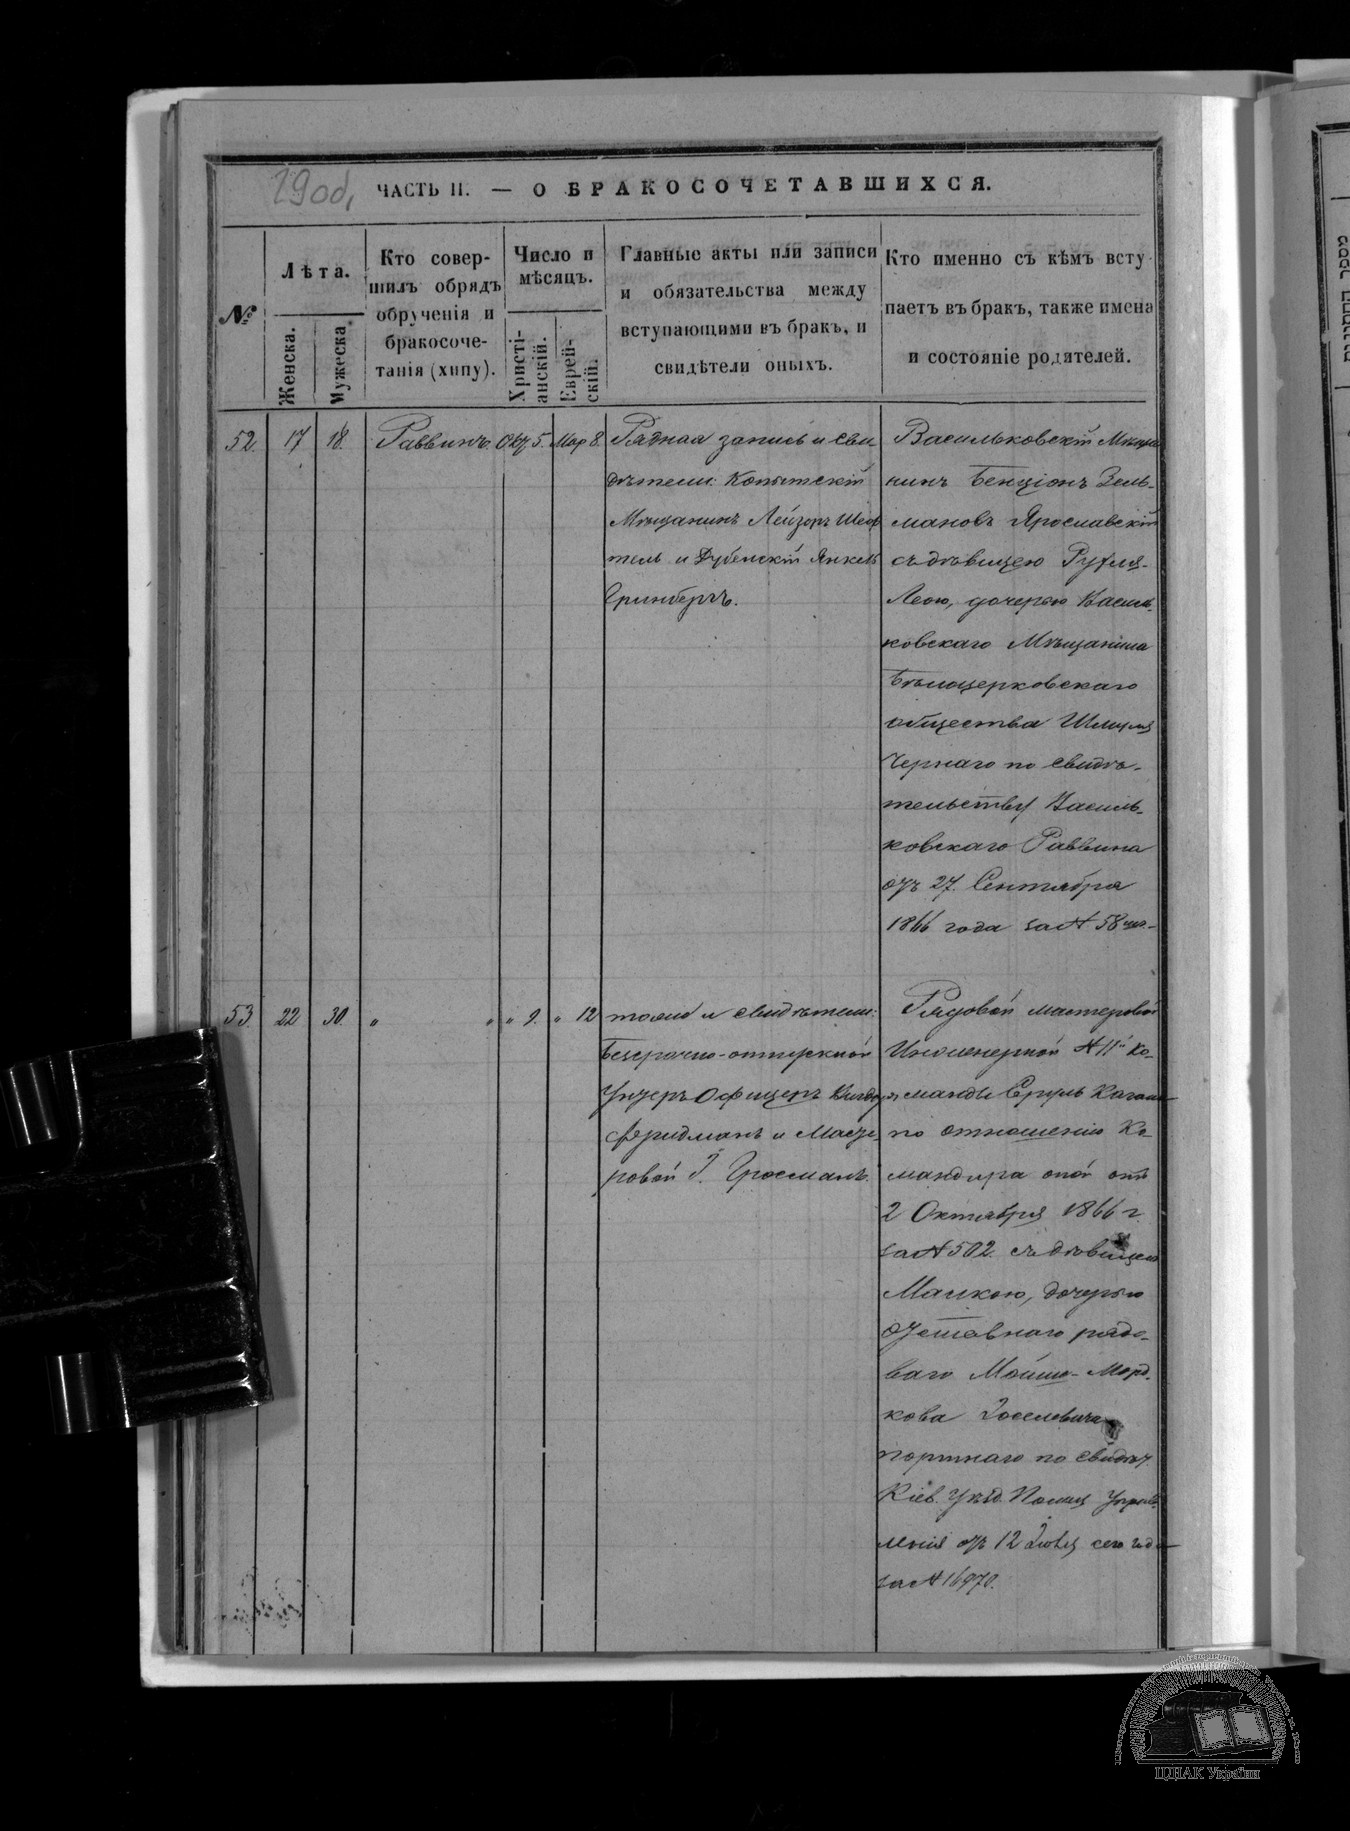 290б,
ЧАСТЬ II. — О БРАКОСОЧЕТАВШИХСЯ.
№
Лѣта.
Женска.
Мужеска.
Кто совер-
шилъ обрядъ
обрученія и
бракосоче-
танія (хипу).
Число и
мѣсяцъ.
Христі-
анскій.
Еврей-
скій.
Главные акты или записи
и обязательства между
вступающими въ бракъ, и
свидѣтели оныхъ.
Кто именно съ кѣмъ всту
паетъ въ бракъ, также имена
и состояніе родителей.
52. 17 18. Раввинъ. Окт. 5. Мар 8.
Рядная запись и сви
дѣтели: Копытскій
Мѣщанинъ Лейзоръ
тель и Дубенскій Янкель
Гринбергъ.
Васильковскій Мѣща
нинъ Бенціонъ Зель-
мановъ Ярославскій
съ дѣвицею Рухля-
Леею, дочерью Василь-
ковскаго Мѣщанина
Бѣлоцерковскаго
общества Шмуля
Чернаго по свидѣ-
тельству Василь-
ковскаго Раввина
отъ 27. Сентября
1866 года за № 58
53. 22 30. " " " 9. " 12
тоже и свидѣтели:
Безсрочно-отпускной
Унтеръ Офицеръ
Фридманъ и Масте
ровой І. Гросманъ.
Рядовой мастеровой
Инженерной № 11й Ко-
манды Сруль Каганъ
по отношенію Ко
мандира оной отъ
2 Октября 1866 г.
за № 502. съ дѣвицею
Малкою, дочерью
отставнаго рядо-
ваго Мойше-Морд-
кова Іоселевича
портнаго по свидѣт.
Кіев. Уѣзд. Полиц Управ
ленія отъ 12 сего года
за № 16970.
ЦДІАК України